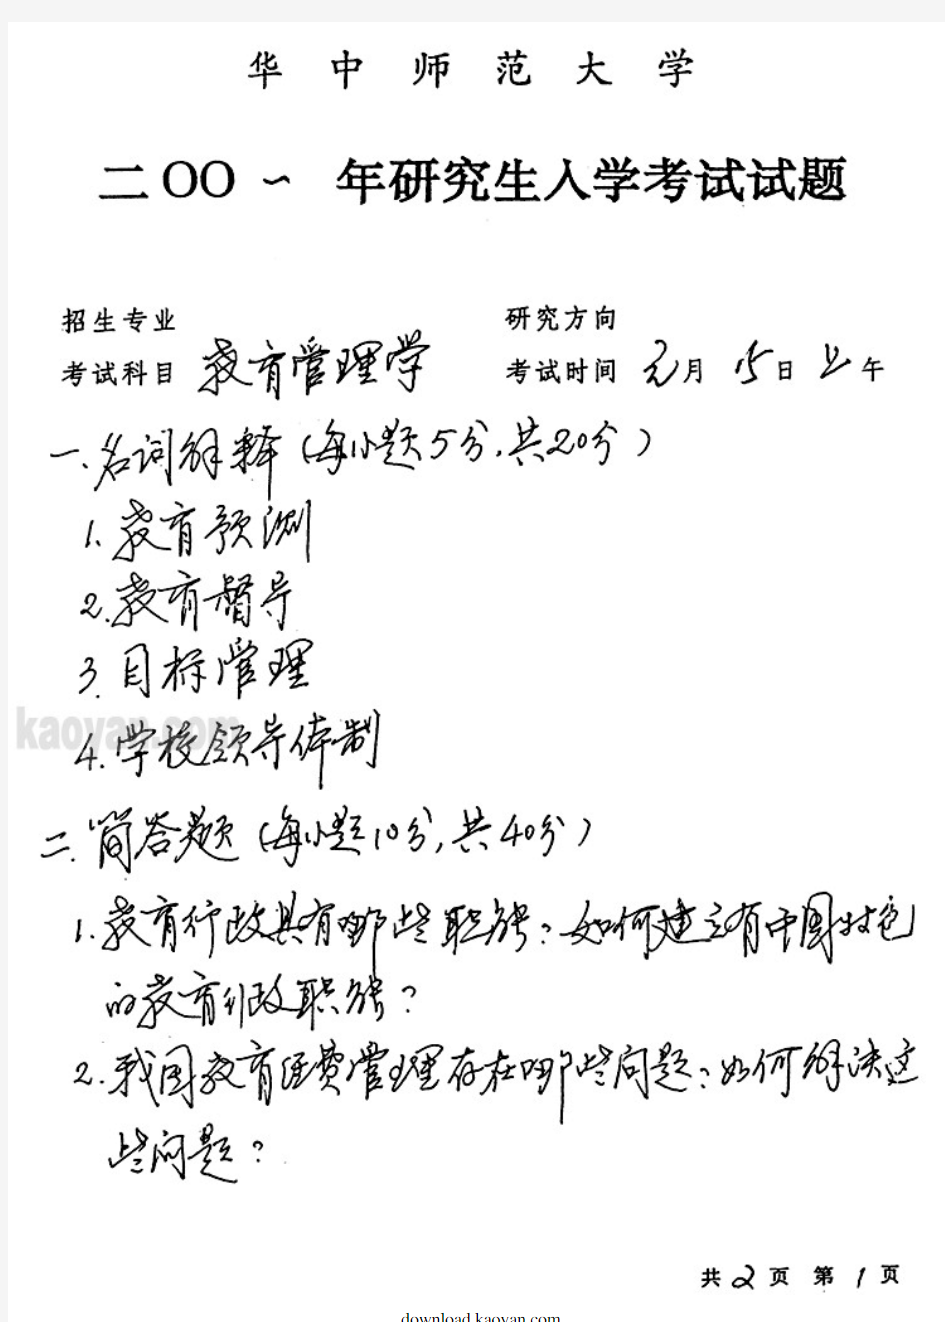 华 中 师 范 大 学
二OO 一 年研究生入学考试试题
招生专业 研究方向
考试科目 教育管理学 考试时间 元月 15日 上午
一、名词解释(每小题5分,共20分)
1. 教育预测
2. 教育督导
3. 目标管理
kaoyan.com
4. 学校领导体制
二、简答题(每小题10分,共40分)
1. 教育行政具有哪些职能?如何建立有中国特色
的教育行政职能?
2. 我国教育经费管理存在哪些问题?如何解决这
些问题?
共 2 页 第 1 页
download.kaoyan.com